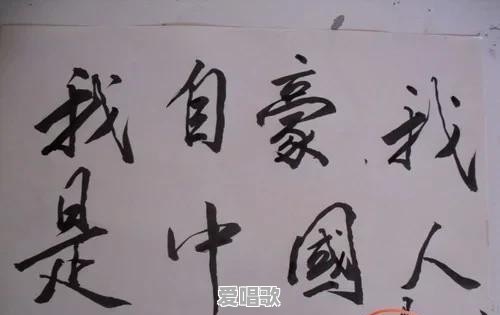 我自豪，我
是中國人
爱唱歌